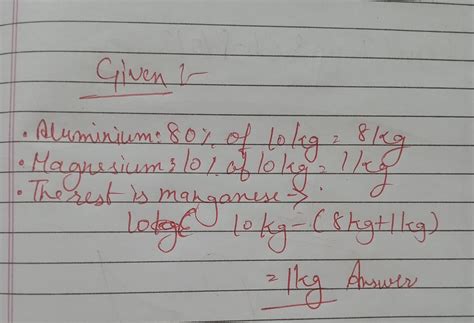 Given :-
• Aluminium: 80% of 10kg = 8kg
• Magnesium: 10% of 10kg = 1kg
• The rest is manganese →
10kg - (8kg+1kg)
= 1kg Answer